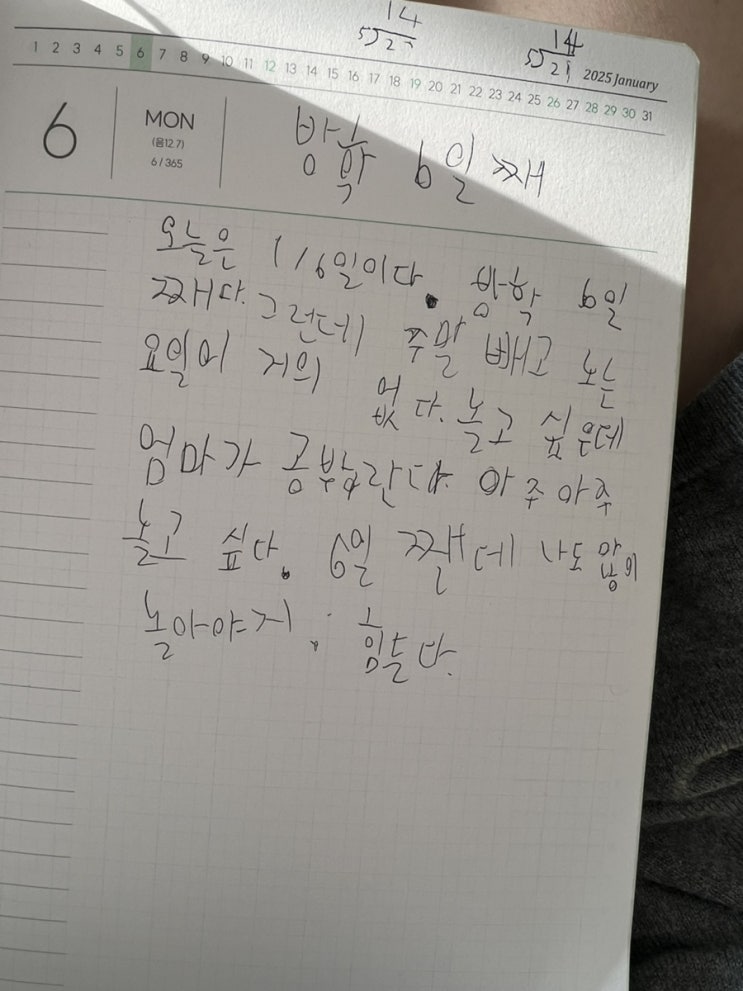 14
5 2
14
5 21
1 2 3 4 5 6 7 8 9 10 11 12 13 14 15 16 17 18 19 20 21 22 23 24 25 26 27 28 29 30 31 2025 January
6 MON
(음12.7)
6/365
방학 6일 째
오늘은 1/6일이다. 방학 6일
째다. 그런데 주말 빼고 노는
요일이 거의 없다. 놀고 싶은데
엄마가 공부하란다. 아주아주
놀고 싶다. 6일 짼데 나도
놀아야지. 힘들다.